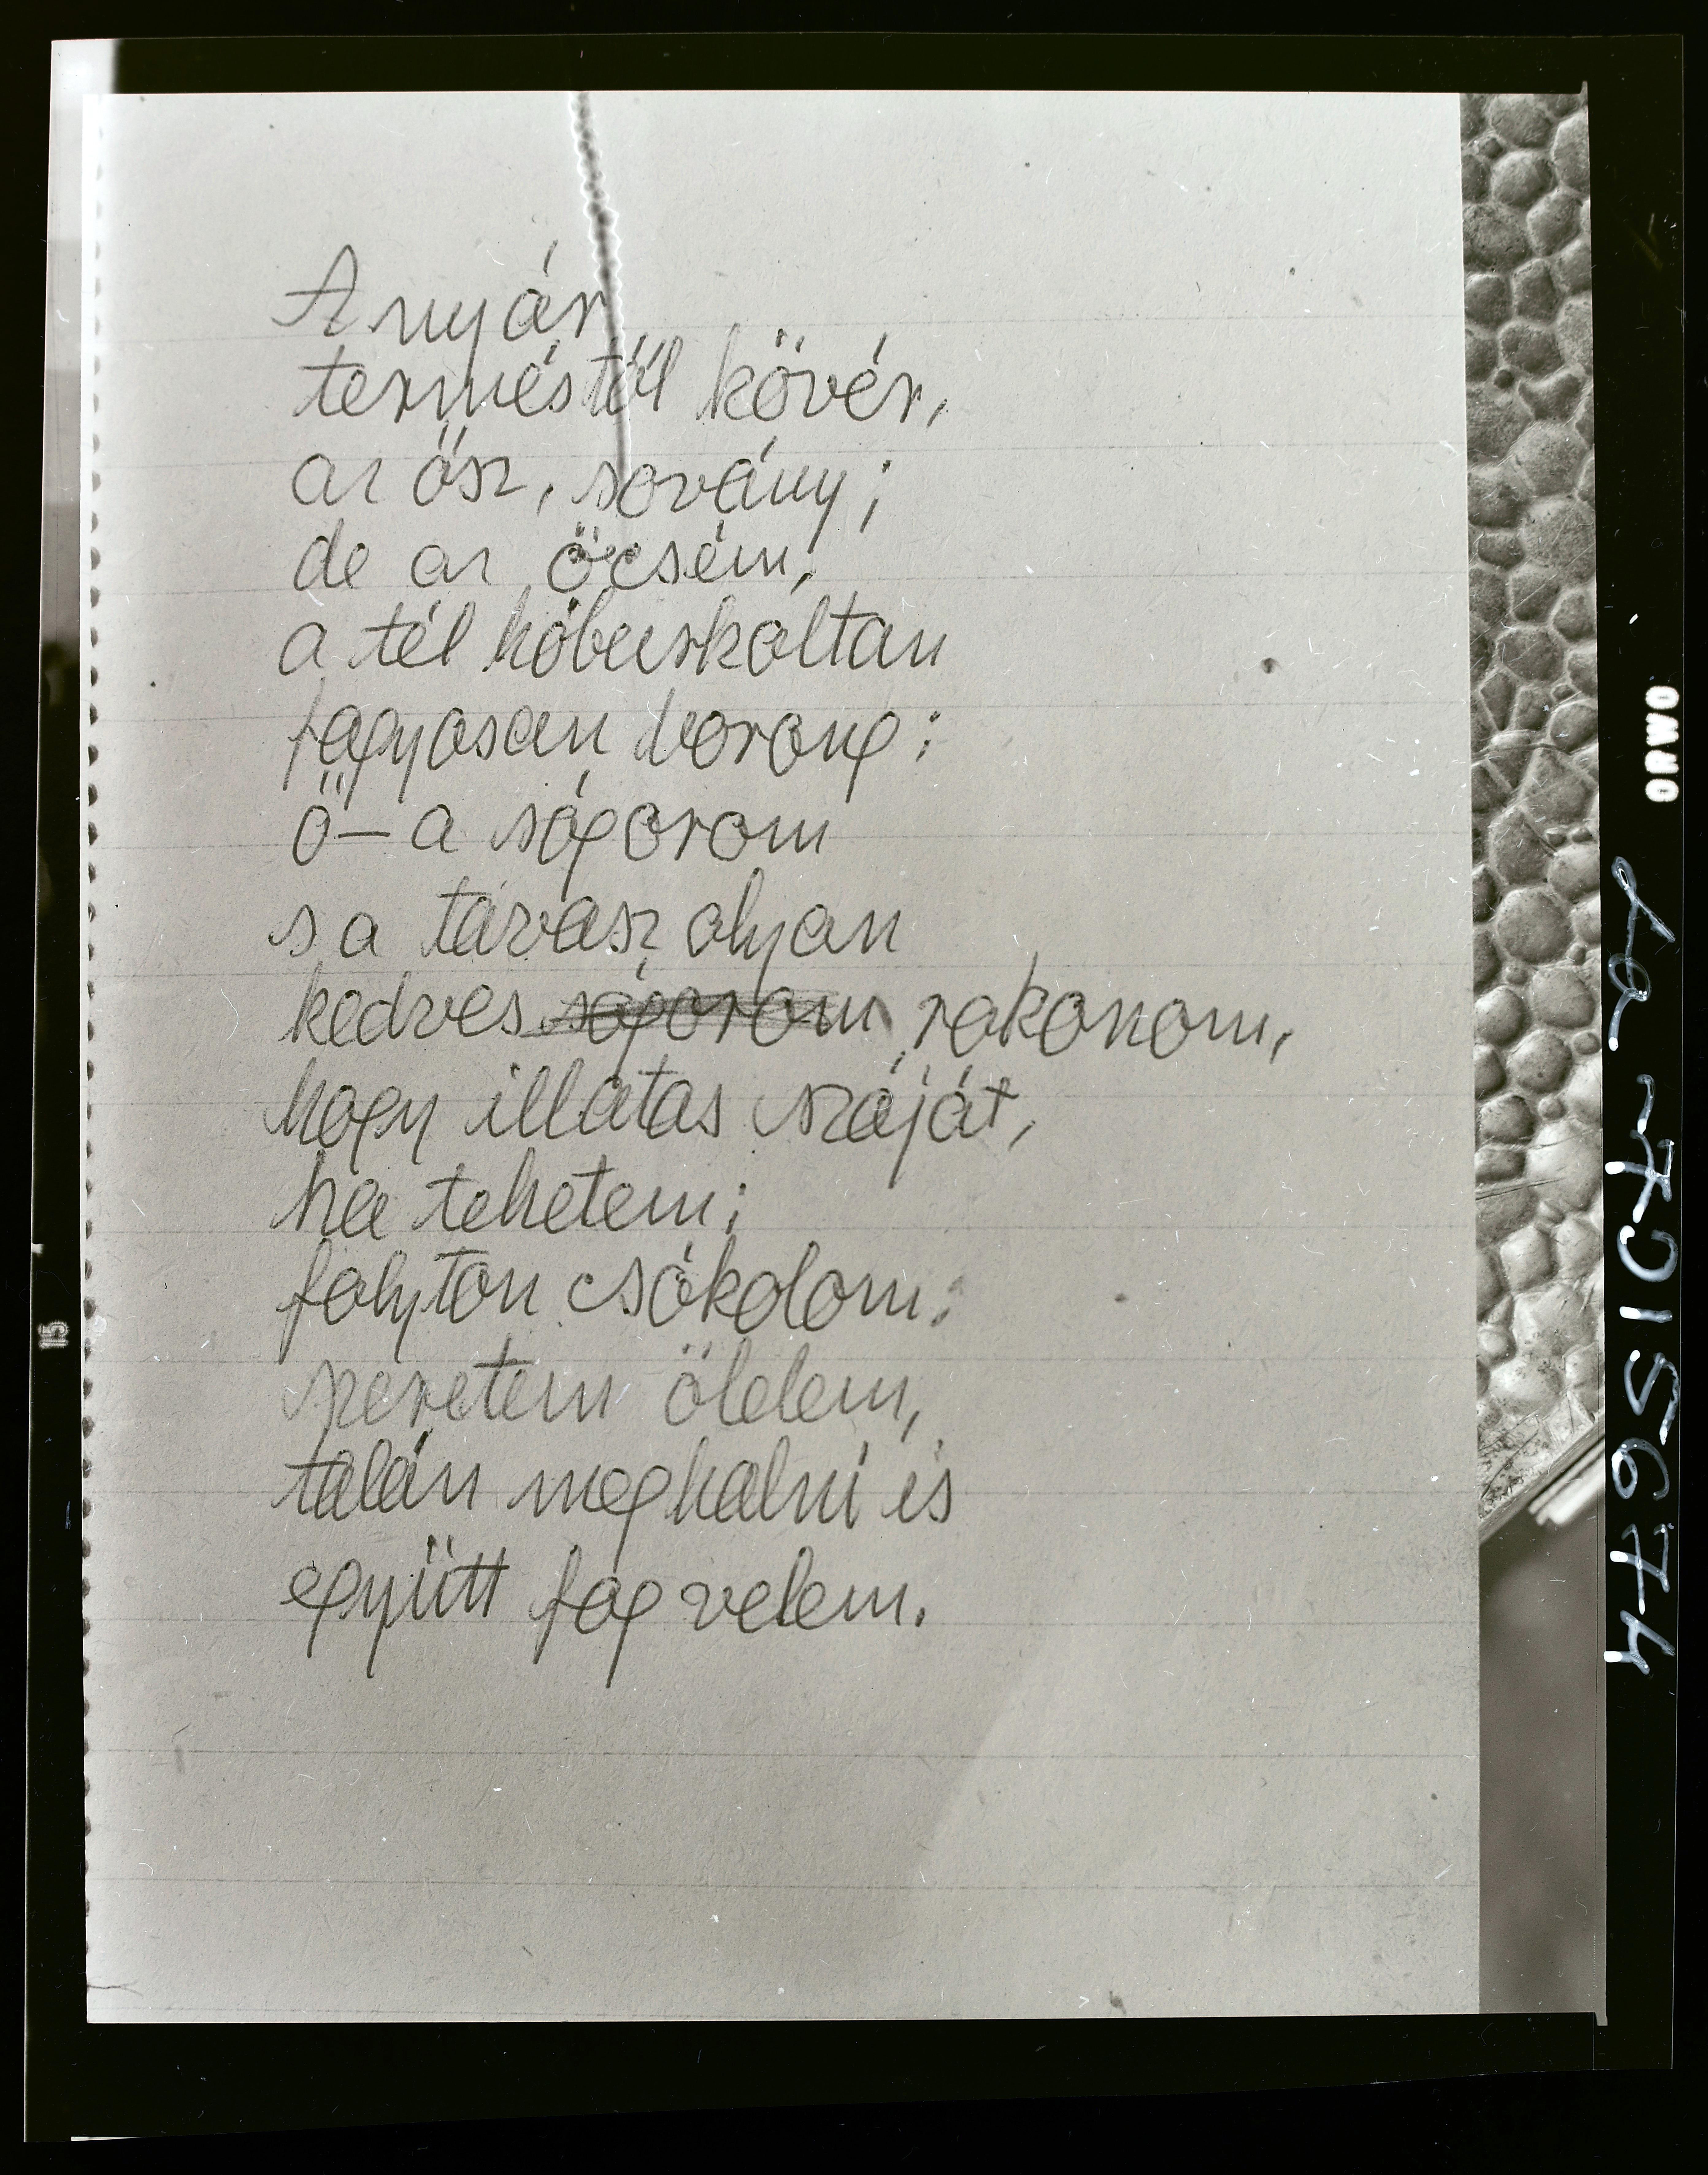 A nyár
terméstől kövér,
az ősz, sovány;
de az öcsém,
a tél hóburkoltan
fagyosan borong:
Ő – a sógorom
s a tavasz olyan
kedves sógorom rokonom,
hogy illatos száját,
ha tehetem;
folyton csókolom.
szeretem ölelem,
talán meghalni is
együtt fog velem.
ORWO
15